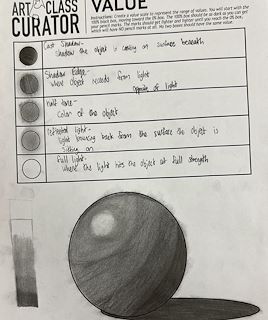 ART CLASS
CURATOR
VALUE
Instructions: Create a value scale to represent the range of values. You will start with the
100% black box, moving toward the 0% box. The 100% box should be as dark as you can get
your pencil marks. The marks should get lighter and lighter until you reach the 0% box,
which will have NO pencil marks at all. No two boxes should have the same value.
Cast Shadow-
Shadow the object is casting on surface beneath
Shadow Edge-
where object recedes from light
Opposite of light
Half tone-
Color of the object
reflected light-
light bouncing back from the surface the object is
sitting on
full light-
where the light hits the object at full strength